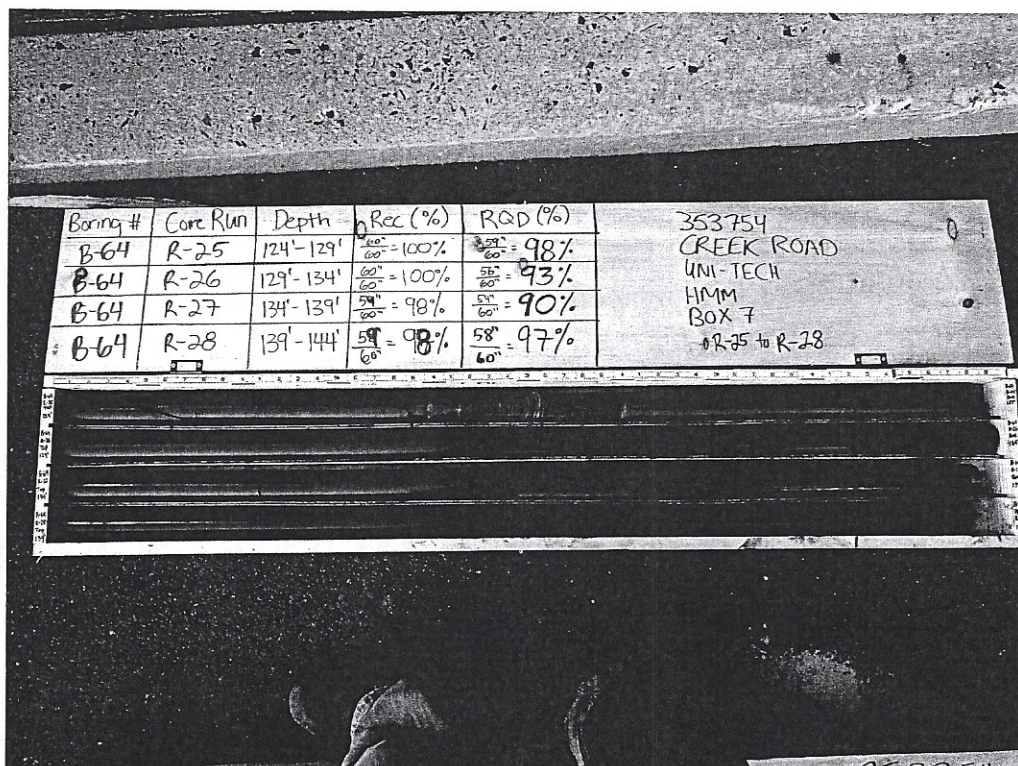 Boring # Core Run Depth Rec (%) RQD (%)
B-64 R-25 124'-129' 60"/60" = 100% 59"/60" = 98%
B-64 R-26 129'-134' 60"/60" = 100% 56"/60" = 93%
B-64 R-27 134'-139' 59"/60" = 98% 54"/60" = 90%
B-64 R-28 139'-144' 59"/60" = 98% 58"/60" = 97%
353754
CREEK ROAD
UNI-TECH
HMM
BOX 7
R-25 to R-28